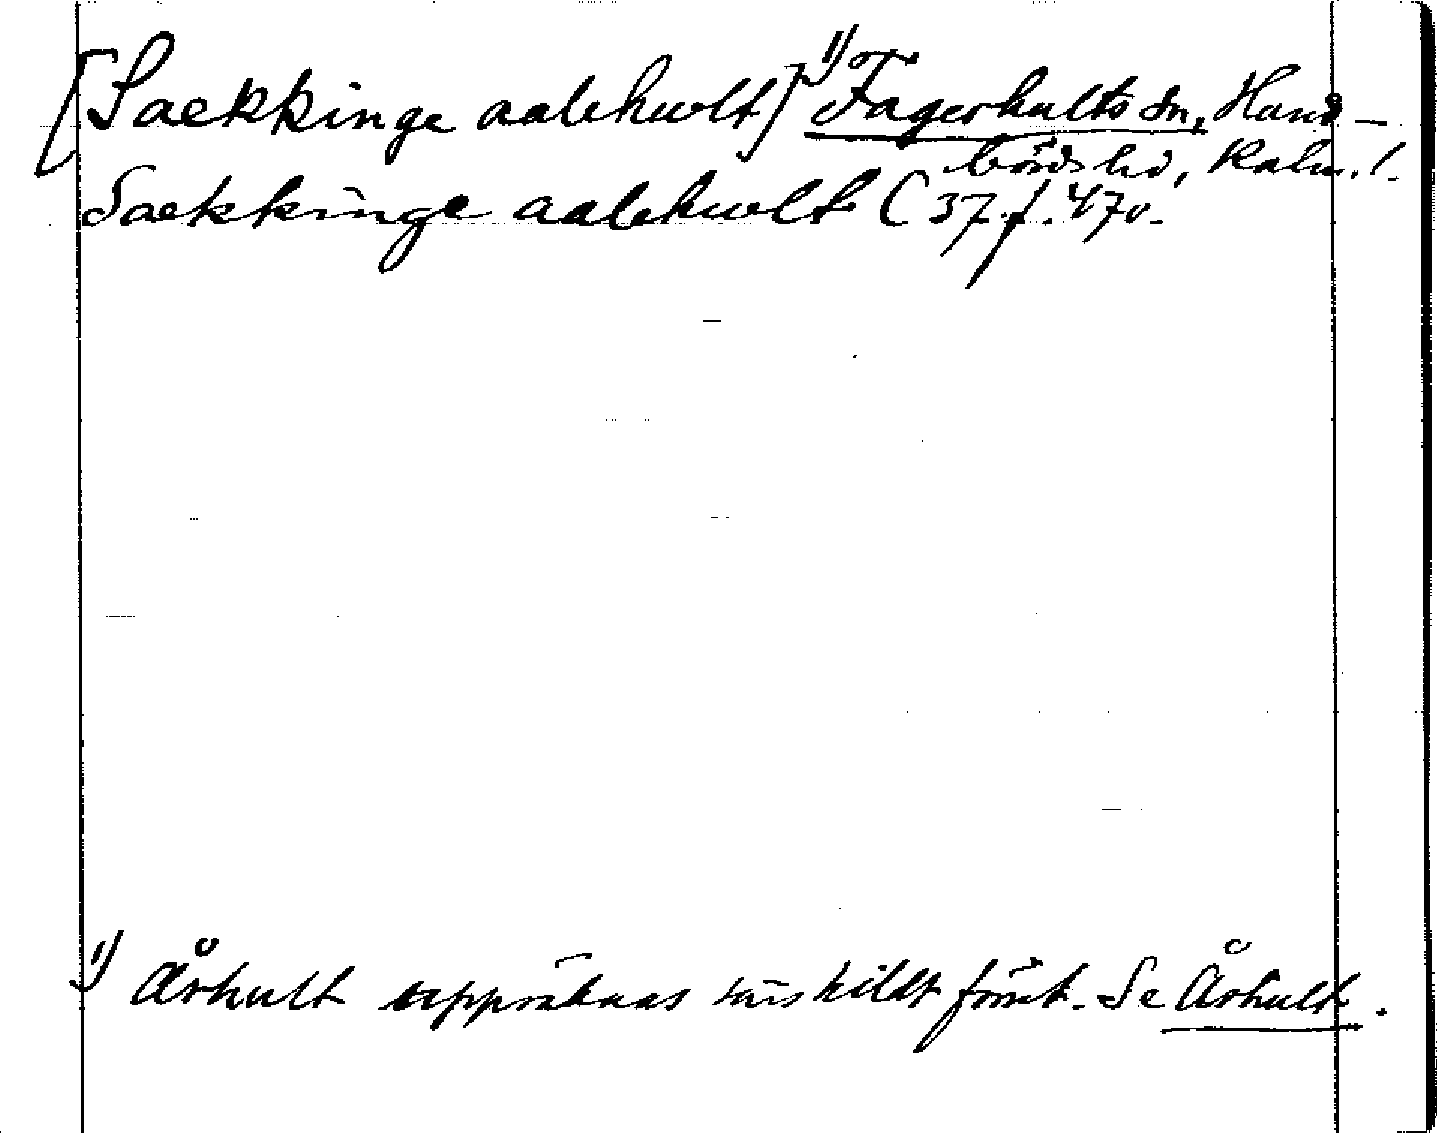 [Saekkinge aalehwlt]¹⁾ Fagerhults sn, Hand-
börds hd, Kalm. l.
Saekkinge aalehwlt C 37 f. 47v.
¹⁾ Århult uppräknas särskildt förut. Se Århult.